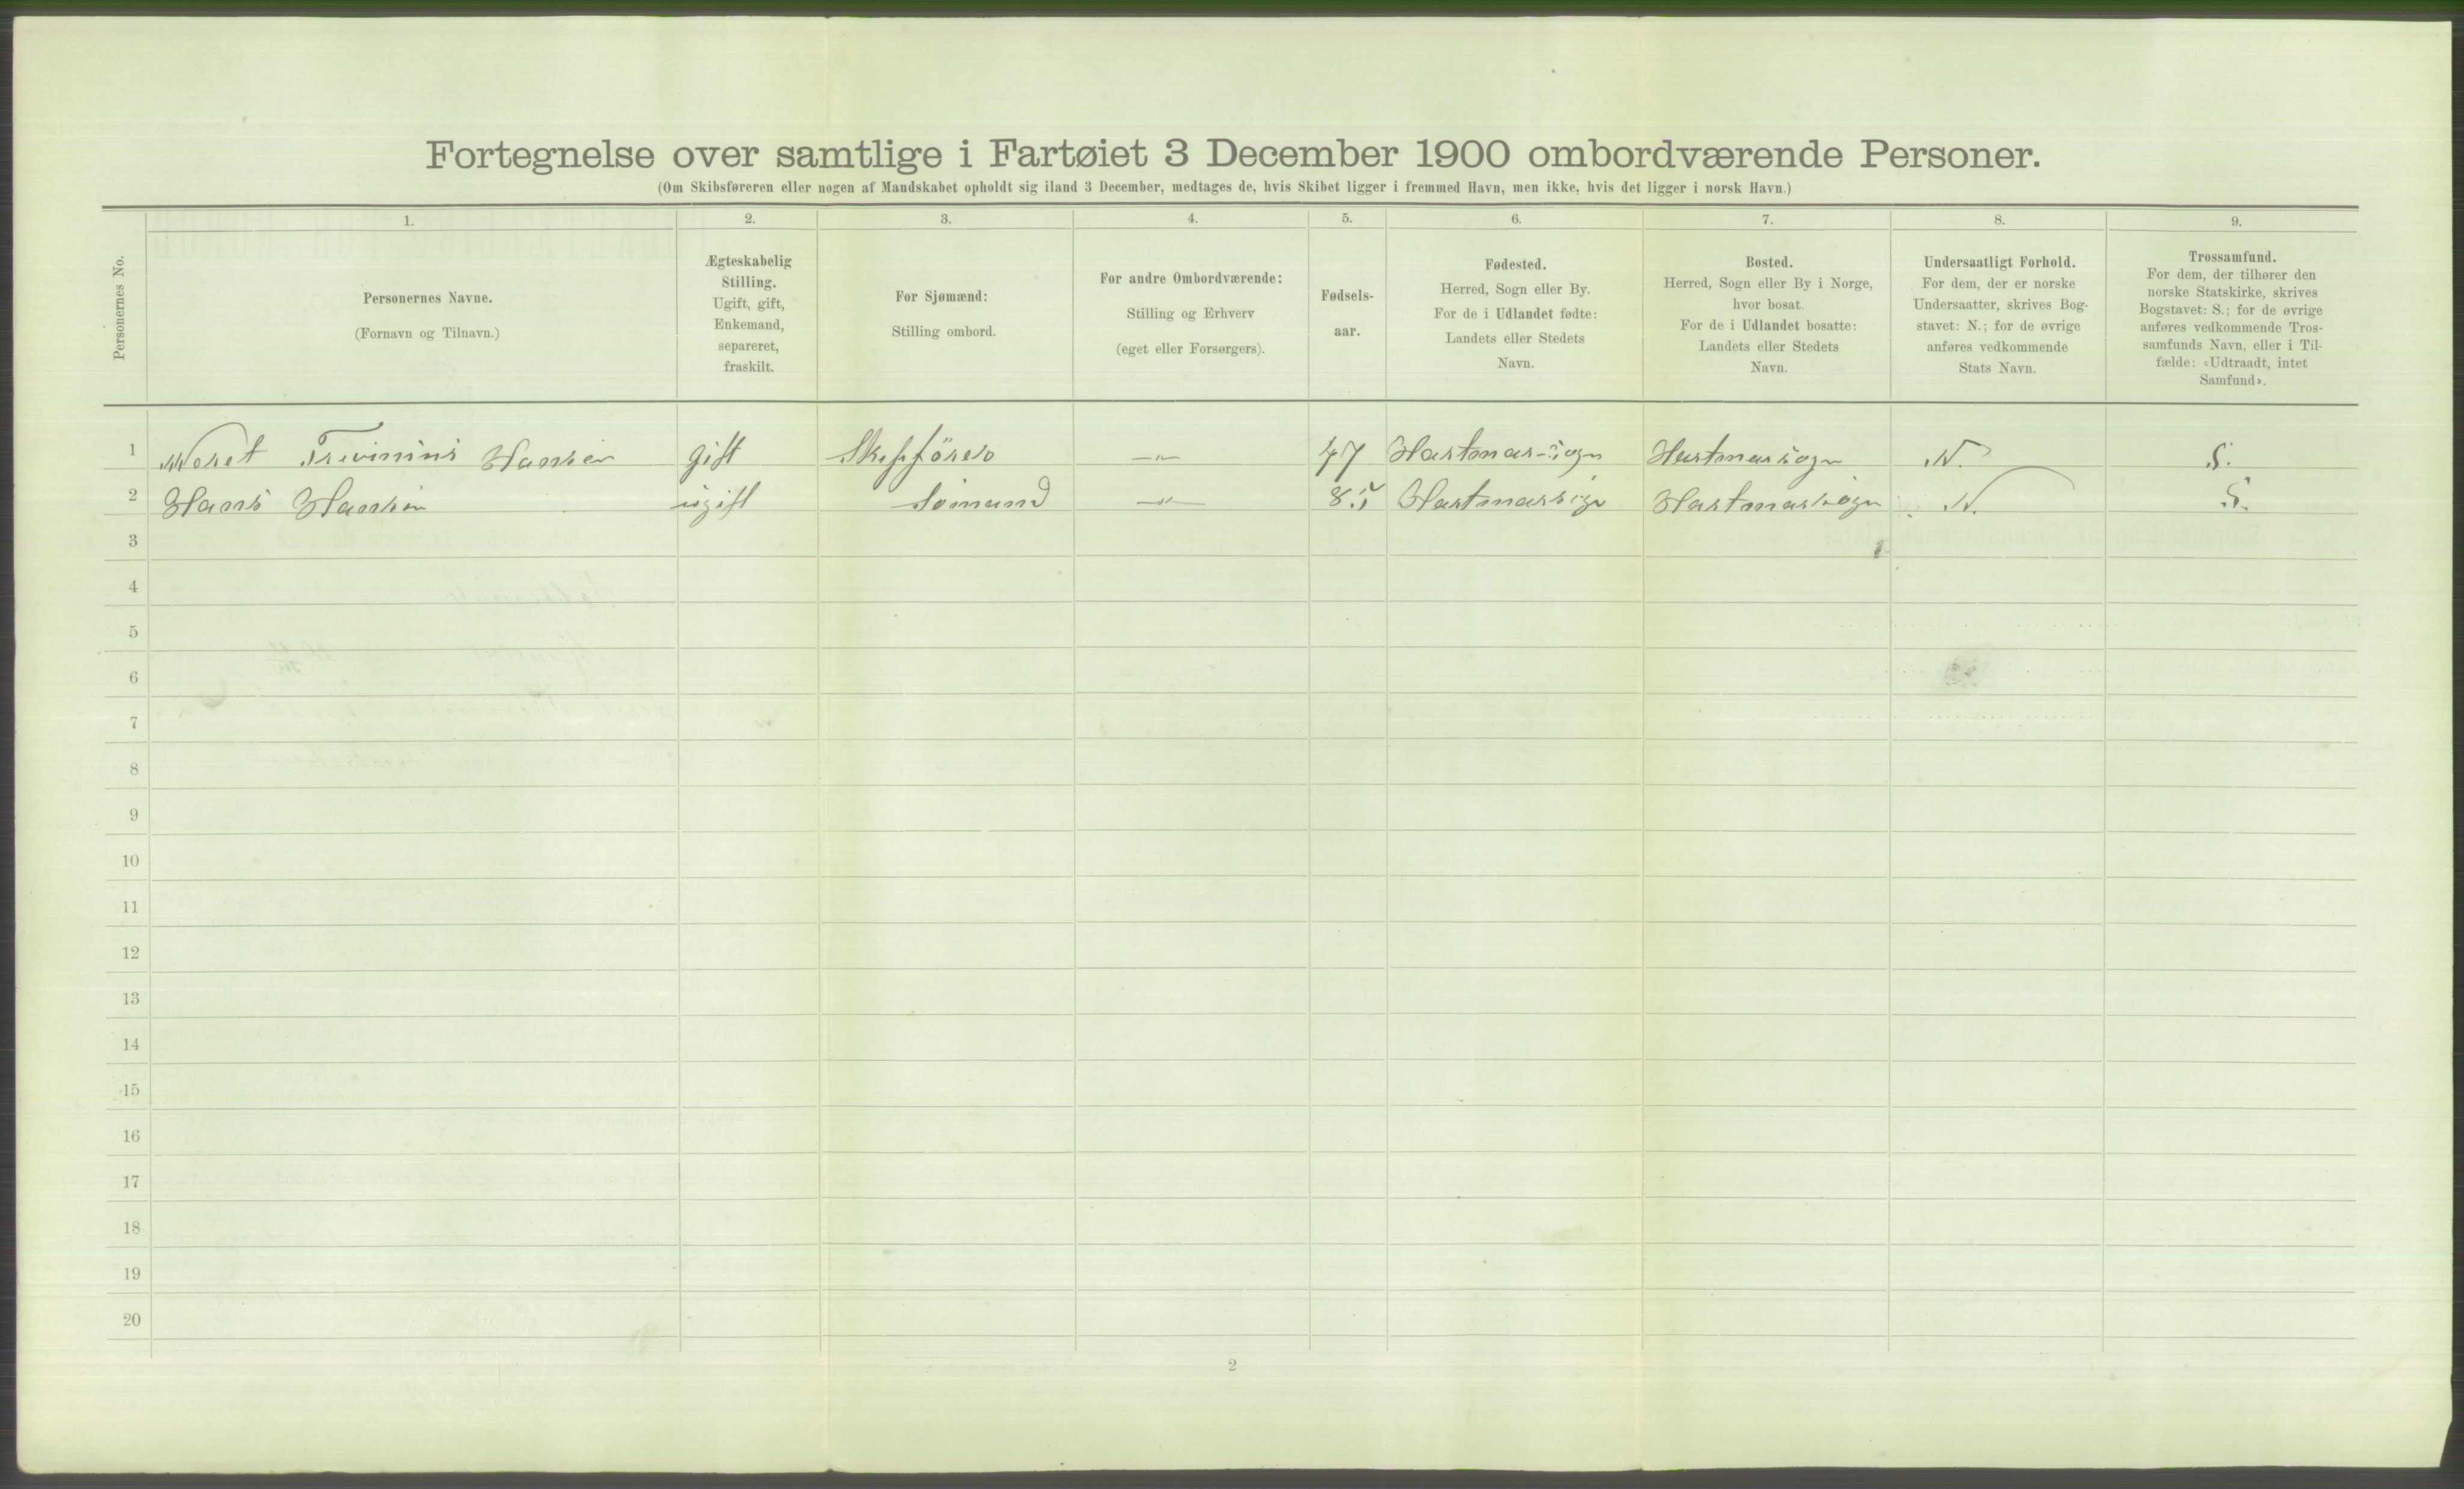 Fortegnelse over samtlige i Fartøiet 3 December 1900 ombordværende Personer.
(Om Skibsføreren eller nogen af Mandskabet opholdt sig iland 3 December, medtages de, hvis Skibet ligger i fremmed Havn, men ikke, hvis det ligger i norsk Havn.)
Personernes No.
1.
Personernes Navne.
(Fornavn og Tilnavn.)
2.
Ægteskabelig
Stilling.
Ugift, gift,
Enkemand,
separeret,
fraskilt.
3.
For Sjømænd:
Stilling ombord.
4.
For andre Ombordværende:
Stilling og Erhverv
(eget eller Forsørgers).
5.
Fødsels-
aar.
6.
Fødested.
Herred, Sogn eller By.
For de i Udlandet fødte:
Landets eller Stedets
Navn.
7.
Bosted.
Herred, Sogn eller By i Norge,
hvor bosat.
For de i Udlandet bosatte:
Landets eller Stedets
Navn.
8.
Undersaatligt Forhold.
For dem, der er norske
Undersaatter, skrives Bog-
stavet: N.; for de øvrige
anføres vedkommende
Stats Navn.
9.
Trossamfund.
For dem, der tilhører den
norske Statskirke, skrives
Bogstavet: S.; for de øvrige
anføres vedkommende Tros-
samfunds Navn, eller i Til-
fælde: «Udtraadt, intet
Samfund».
1 Hansen gift 47 N. S.
2 Hans Hansen ugift Sömand —"— 85 Hartmarksogn Hartmarksogn N. S.
3
4
5
6
7
8
9
10
11
12
13
14
15
16
17
18
19
20
2